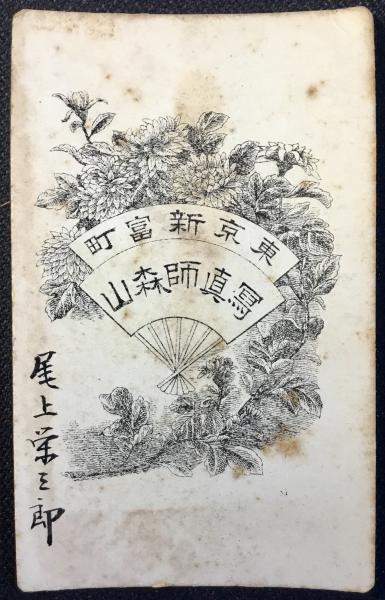 東京新富町
寫真師森山
尾上栄三郎